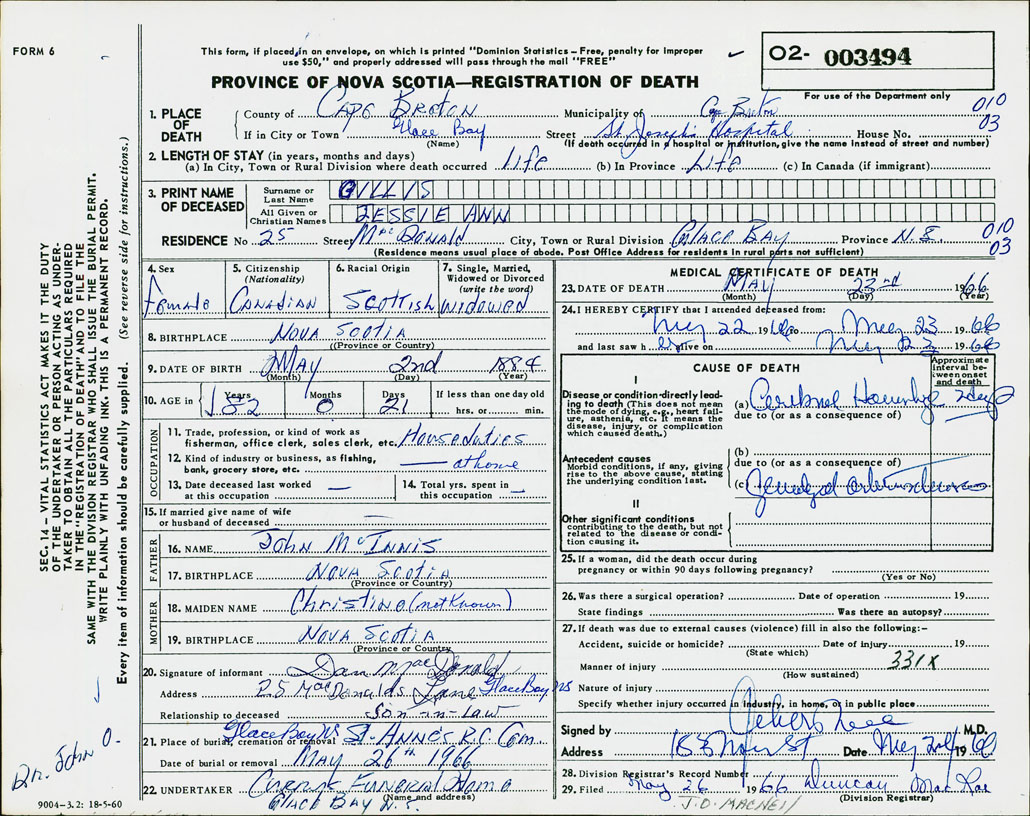 FORM 6
This form, if placed in an envelope, on which is printed "Dominion Statistics – Free, penalty for improper
use $50," and properly addressed will pass through the mail "FREE"
O2- 003494
PROVINCE OF NOVA SCOTIA—REGISTRATION OF DEATH
For use of the Department only
1. PLACE OF DEATH
County of Cape Breton Municipality of Cape Breton 010
If in City or Town Glace Bay Street St. Joseph's Hospital House No. 03
(Name) (If death occurred in a hospital or institution, give the name instead of street and number)
2. LENGTH OF STAY (in years, months and days)
(a) In City, Town or Rural Division where death occurred Life (b) In Province Life (c) In Canada (if immigrant)
3. PRINT NAME OF DECEASED
Surname or Last Name GILLIS
All Given or Christian Names JESSIE ANN
RESIDENCE No 25 Street MacDonald City, Town or Rural Division Glace Bay Province N.S. 010 03
(Residence means usual place of abode. Post Office Address for residents in rural parts not sufficient)
4. Sex Female
5. Citizenship (Nationality) Canadian
6. Racial Origin Scottish
7. Single, Married, Widowed or Divorced (write the word) Widowed
8. BIRTHPLACE Nova Scotia
(Province or Country)
9. DATE OF BIRTH May 2nd 1884
(Month) (Day) (Year)
10. AGE in Years 82 Months 0 Days 21 If less than one day old
hrs. or min.
OCCUPATION
11. Trade, profession, or kind of work as
fisherman, office clerk, sales clerk, etc. House duties
12. Kind of industry or business, as fishing,
bank, grocery store, etc. — at home
13. Date deceased last worked at this occupation —
14. Total yrs. spent in this occupation —
15. If married give name of wife
or husband of deceased —
FATHER
16. NAME John McInnis
17. BIRTHPLACE Nova Scotia
(Province or Country)
MOTHER
18. MAIDEN NAME Christine (not known)
19. BIRTHPLACE Nova Scotia
(Province or Country)
20. Signature of informant Dan M. MacDonald
Address 25 MacDonalds Lane Glace Bay NS
Relationship to deceased Son-in-Law
21. Place of burial, cremation or removal Glace Bay NS St. Anne's R.C. Cem.
Date of burial or removal May 26th 1966
22. UNDERTAKER Funeral Home
Glace Bay N.S. (Name and address)
MEDICAL CERTIFICATE OF DEATH
23. DATE OF DEATH May 23rd 1966
(Month) (Day) (Year)
24. I HEREBY CERTIFY that I attended deceased from:
May 22 1966 to May 23 1966
and last saw her alive on May 23 1966
CAUSE OF DEATH
Approximate interval between onset and death
I
Disease or condition directly leading to death (This does not mean the mode of dying, e.g., heart failure, asthenia, etc. It means the disease, injury, or complication which caused death.)
(a) Cerebral Hemorrhage 2 days
due to (or as a consequence of)
Antecedent causes
Morbid conditions, if any, giving rise to the above cause, stating the underlying condition last.
(b)
due to (or as a consequence of)
(c) Generalized arteriosclerosis
II
Other significant conditions
contributing to the death, but not related to the disease or condition causing it.
25. If a woman, did the death occur during
pregnancy or within 90 days following pregnancy?
(Yes or No)
26. Was there a surgical operation? Date of operation 19
State findings Was there an autopsy?
27. If death was due to external causes (violence) fill in also the following:–
Accident, suicide or homicide? Date of injury 19
(State which)
Manner of injury 331X
(How sustained)
Nature of injury
Specify whether injury occurred in industry, in home, or in public place
Signed by M.D.
Address Main St Date May 1966
28. Division Registrar's Record Number
29. Filed May 26 1966 Duncan MacRae
(Division Registrar)
J.D. MACNEIL
SEC. 14 – VITAL STATISTICS ACT MAKES IT THE DUTY
OF THE UNDERTAKER OR PERSON ACTING AS UNDER-
TAKER TO OBTAIN ALL THE PARTICULARS REQUIRED
IN THE "REGISTRATION OF DEATH" AND TO FILE THE
SAME WITH THE DIVISION REGISTRAR WHO SHALL ISSUE THE BURIAL PERMIT.
WRITE PLAINLY WITH UNFADING INK. THIS IS A PERMANENT RECORD.
Every item of information should be carefully supplied. (See reverse side for instructions.)
Dr. John O.
9004–3.2: 18-5-60